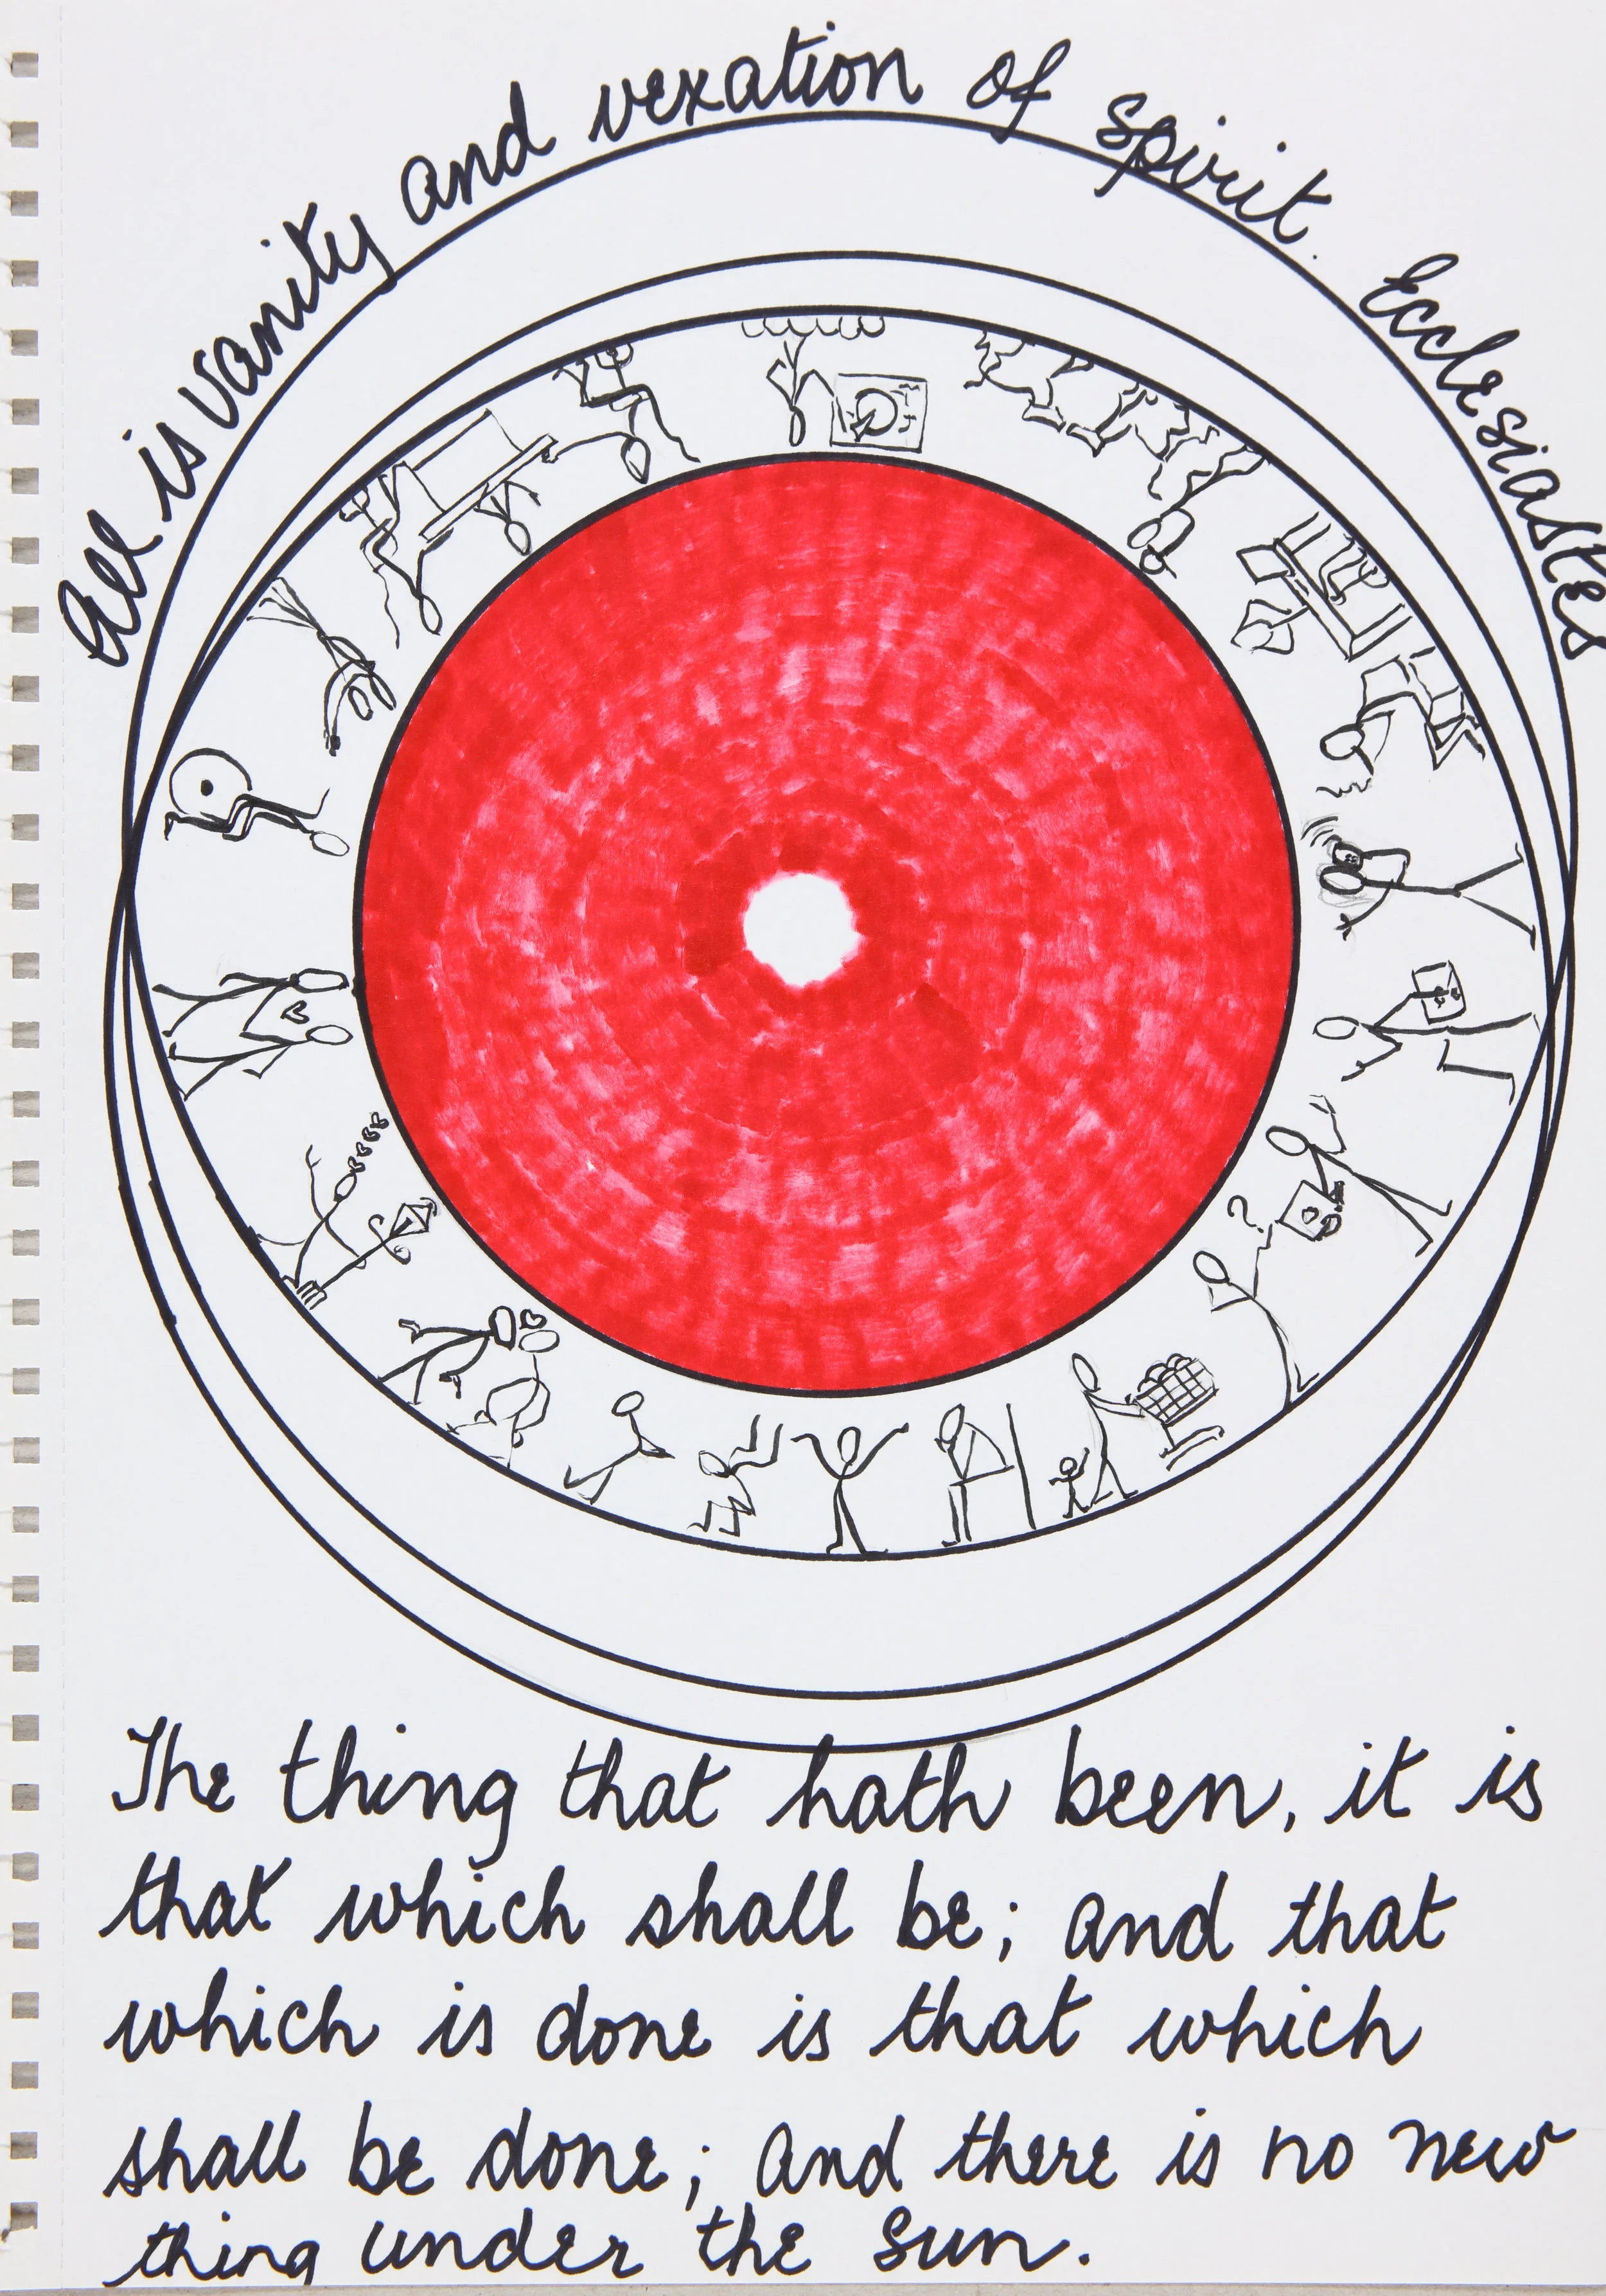 All is vanity and vexation of spirit. Ecclesiastes
The thing that hath been, it is
that which shall be; and that
which is done is that which
shall be done; and there is no new
thing under the sun.